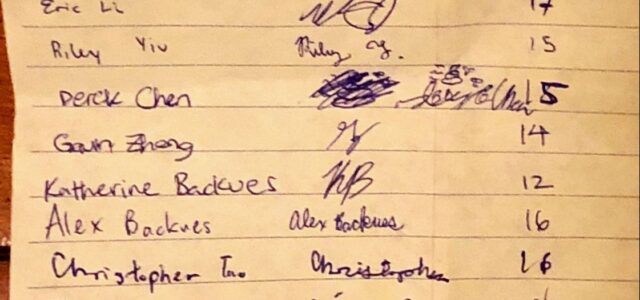 Eric Li 17
Riley Yiu Riley Y. 15
Derek Chen 15
Gavin Zhong 14
Katherine Backues KB 12
Alex Backues Alex Backues 16
Christopher Tao Christopher 16